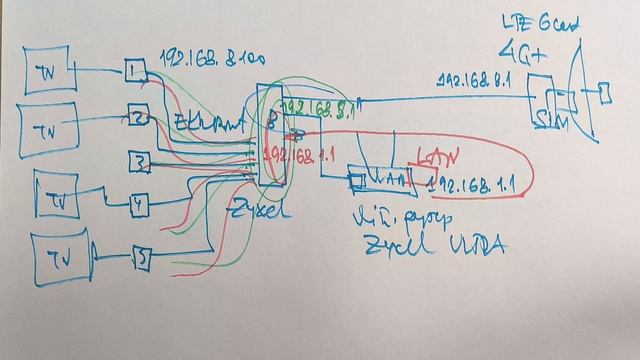 LTE 6 cat
4G+
192.168.8.100
192.168.8.1
TV
1
SIM
TV
2
Ethernet
8
192.168.8.1
192.168.1.1
LAN
3
WAN
192.168.1.1
TV
4
Zyxel
Zyxel ULTRA
TV
5